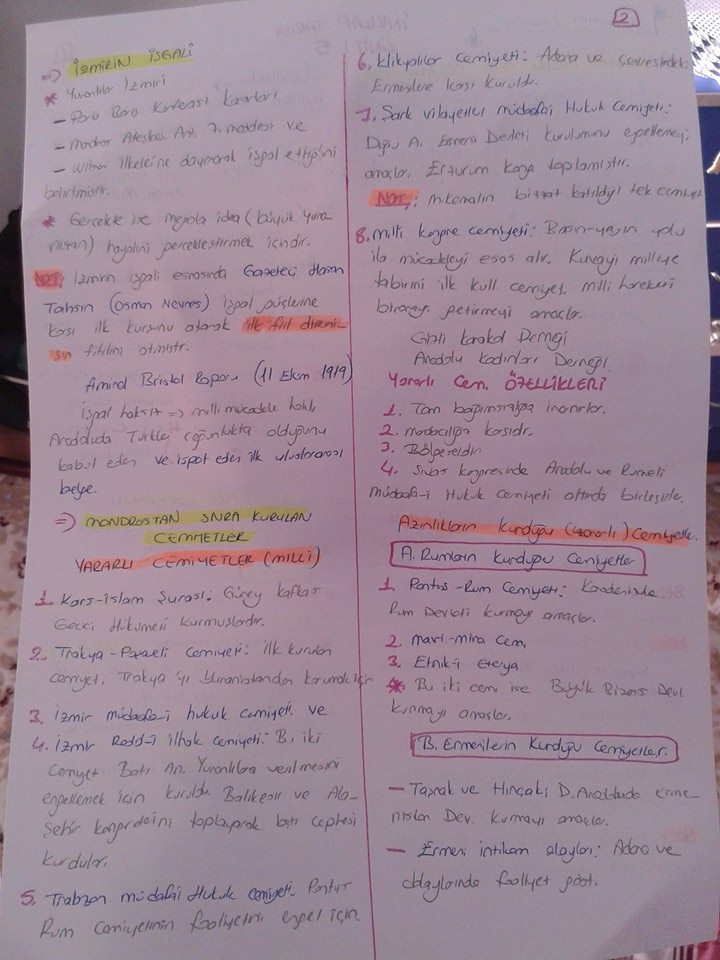 2
=> İZMİRİN İŞGALİ
* Yunanlılar İzmiri
- Paris Barış Konferansı Kararları
- Mondros Ateşkes Ant. 7. maddesi ve
- Wilson ilkelerine dayanarak işgal ettiğini
belirtmiştir.
* Gerçekte ise megola idea (büyük Yuna
nistan) hayalini gerçekleştirmek içindir.
NOT: İzmirin işgali esnasında Gazeteci Hasan
Tahsin (Osman Nevres) işgal güçlerine
karşı ilk kurşunu atarak ilk fiili direni-
şin fitilini atmıştır.
Amiral Bristol Raporu (11 Ekim 1919)
işgal haksız => milli mücadele haklı,
Anadoluda Türkler çoğunlukta olduğunu
kabul eden ve ispat eden ilk uluslararası
belge.
=> MONDROSTAN SONRA KURULAN
CEMİYETLER
YARARLI CEMİYETLER (MİLLİ)
1. Kars-İslam Şurası: Güney Kafkas
Geçici Hükümeti kurmuşlardır.
2. Trakya-Paşaeli Cemiyeti: ilk kurulan
cemiyet. Trakya'yı Yunanistandan korumak için
3. İzmir müdafa-i hukuk cemiyeti ve
4. İzmir Redd-i ilhak cemiyeti: Bu iki
Cemiyet Batı An. Yunanlılara verilmesini
engellemek için kuruldu. Balıkesir ve Ala-
şehir kongrelerini toplayarak batı cephesi
kurdular.
5. Trabzon müdafai Hukuk cemiyeti: Pontus
Rum Cemiyetinin faaliyetini engel için.
6. Klikyalılar Cemiyeti: Adana ve çevresindek
Ermenilere karşı kuruldu.
7. Şark vilayetleri müdafai Hukuk Cemiyeti:
Doğu A. Ermeni Devleti kurulumunu engellemeyi
amaçlar. Erzurum Kong. toplamıştır.
NOT: m. kemalin bizzat katıldığı tek cemiyet
8. Milli kongre cemiyeti: Basın-yayın yolu
ile mücadeleyi esas alır. Kuvayi milliye
tabirini ilk kull cemiyet, milli hareketi
biraraya getirmeyi amaçlar.
Gizli karakol Derneği
Anadolu kadınları Derneği.
Yararlı Cem. ÖZELLİKLERİ
1. Tam bağımsızlığa inanırlar.
2. mandacılığa karşıdır.
3. Bölgeseldir.
4. Sivas kongresinde Anadolu ve Rumeli
müdafa-i Hukuk Cemiyeti altında birleşirler.
Azınlıkların Kurduğu (zararlı) Cemiyetler.
A. Rumların Kurduğu Cemiyetler
1. Pontus-Rum Cemiyeti: Karadenizde
Rum Devleti kurmayı amaçlar.
2. mavi-mira Cem.
3. Etnik-i Eterya
* Bu iki cem ise Büyük Bizans Devl
kurmayı amaçlar.
B. Ermenilerin Kurduğu Cemiyetler.
- Taşnak ve Hınçak: D. Anadoluda Erme-
nistan Dev. kurmayı amaçlar.
- Ermeni intikam alayları: Adana ve
dolaylarında faaliyet göst.